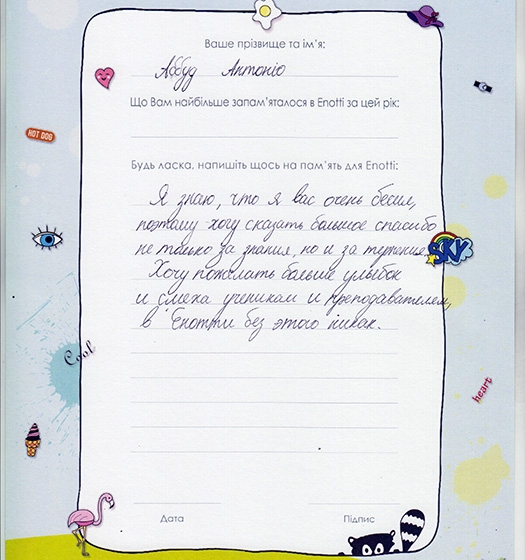 Ваше прізвище та ім'я:
Аббуд Антоніо
Що Вам найбільше запам'яталося в Enotti за цей рік:
HOT DOG
Будь ласка, напишіть щось на пам'ять для Enotti:
Я знаю, что я вас очень бесил,
поэтому хочу сказать большое спасибо
не только за знания, но и за терпение.
SKY
Хочу пожелать больше улыбок
и смеха ученикам и преподавателем,
в Енотти без этого никак.
Cool
heart
Дата Підпис